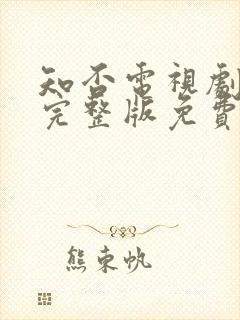 知否電視劇
完整版免費
熊東帆